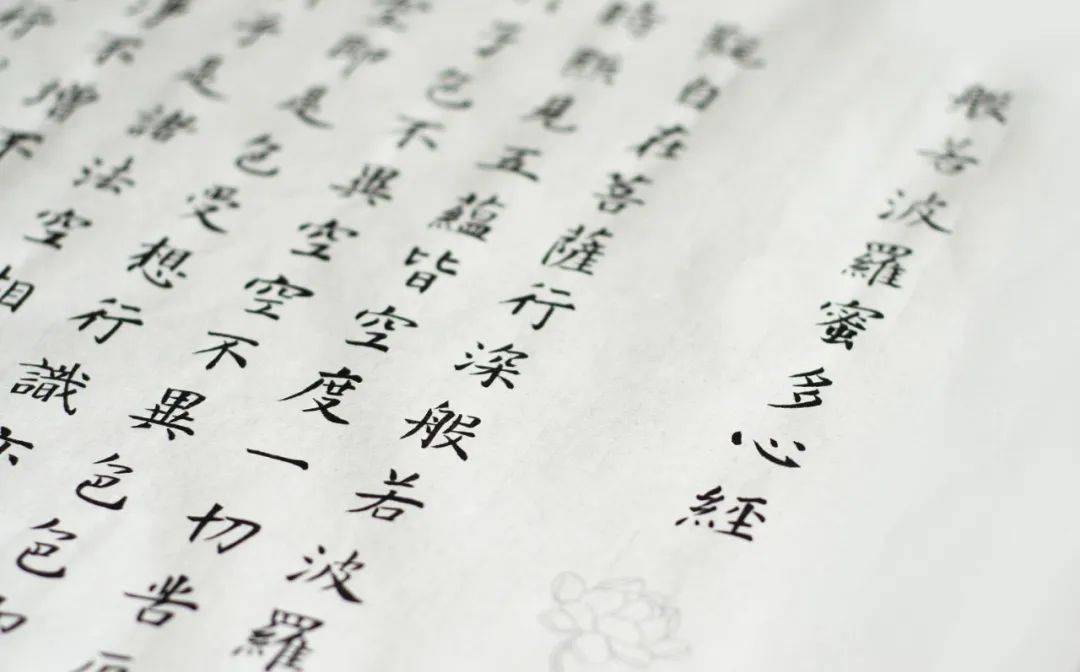 般若波羅蜜多心經
觀自在菩薩行深般若波羅
時照見五蘊皆空度一切苦厄
子色不異空空不異色色即
空即是色受想行識亦
子是諸法空相
淨不增不
行